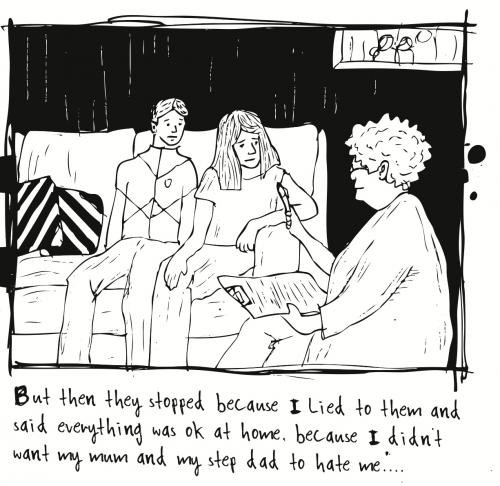 But then they stopped because I Lied to them and
said everything was ok at home. because I didn't
want my mum and my step dad to hate me"....